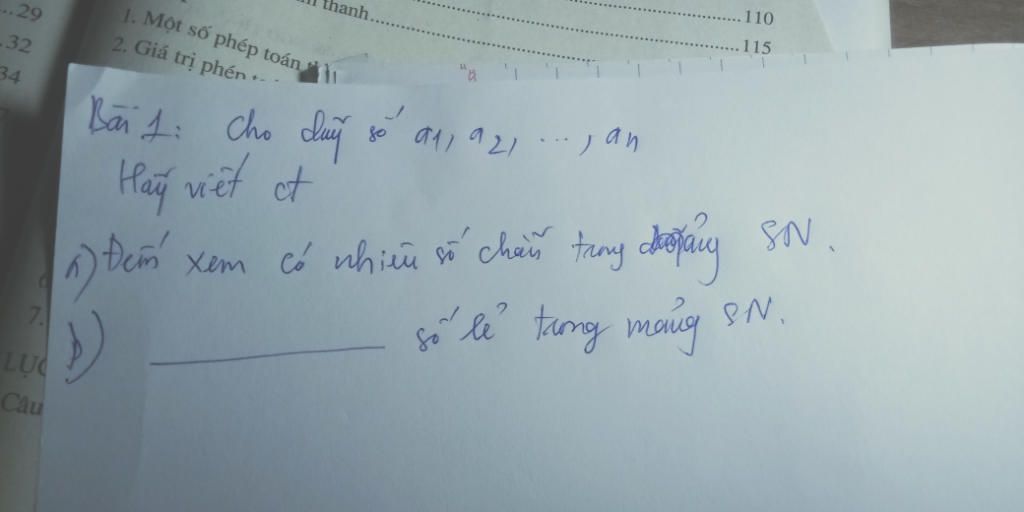 ...29
.32
34
anh thanh ... 110
1. Một số phép toán
... 115
2. Giá trị phép
"a
Bài 1: Cho dãy số a1, a2, ..., an
Hãy viết ct
a) Đếm xem có nhiêu số chẵn trong mảng SN.
b) ________ số lẻ trong mảng SN.
7.
LỤC
Câu